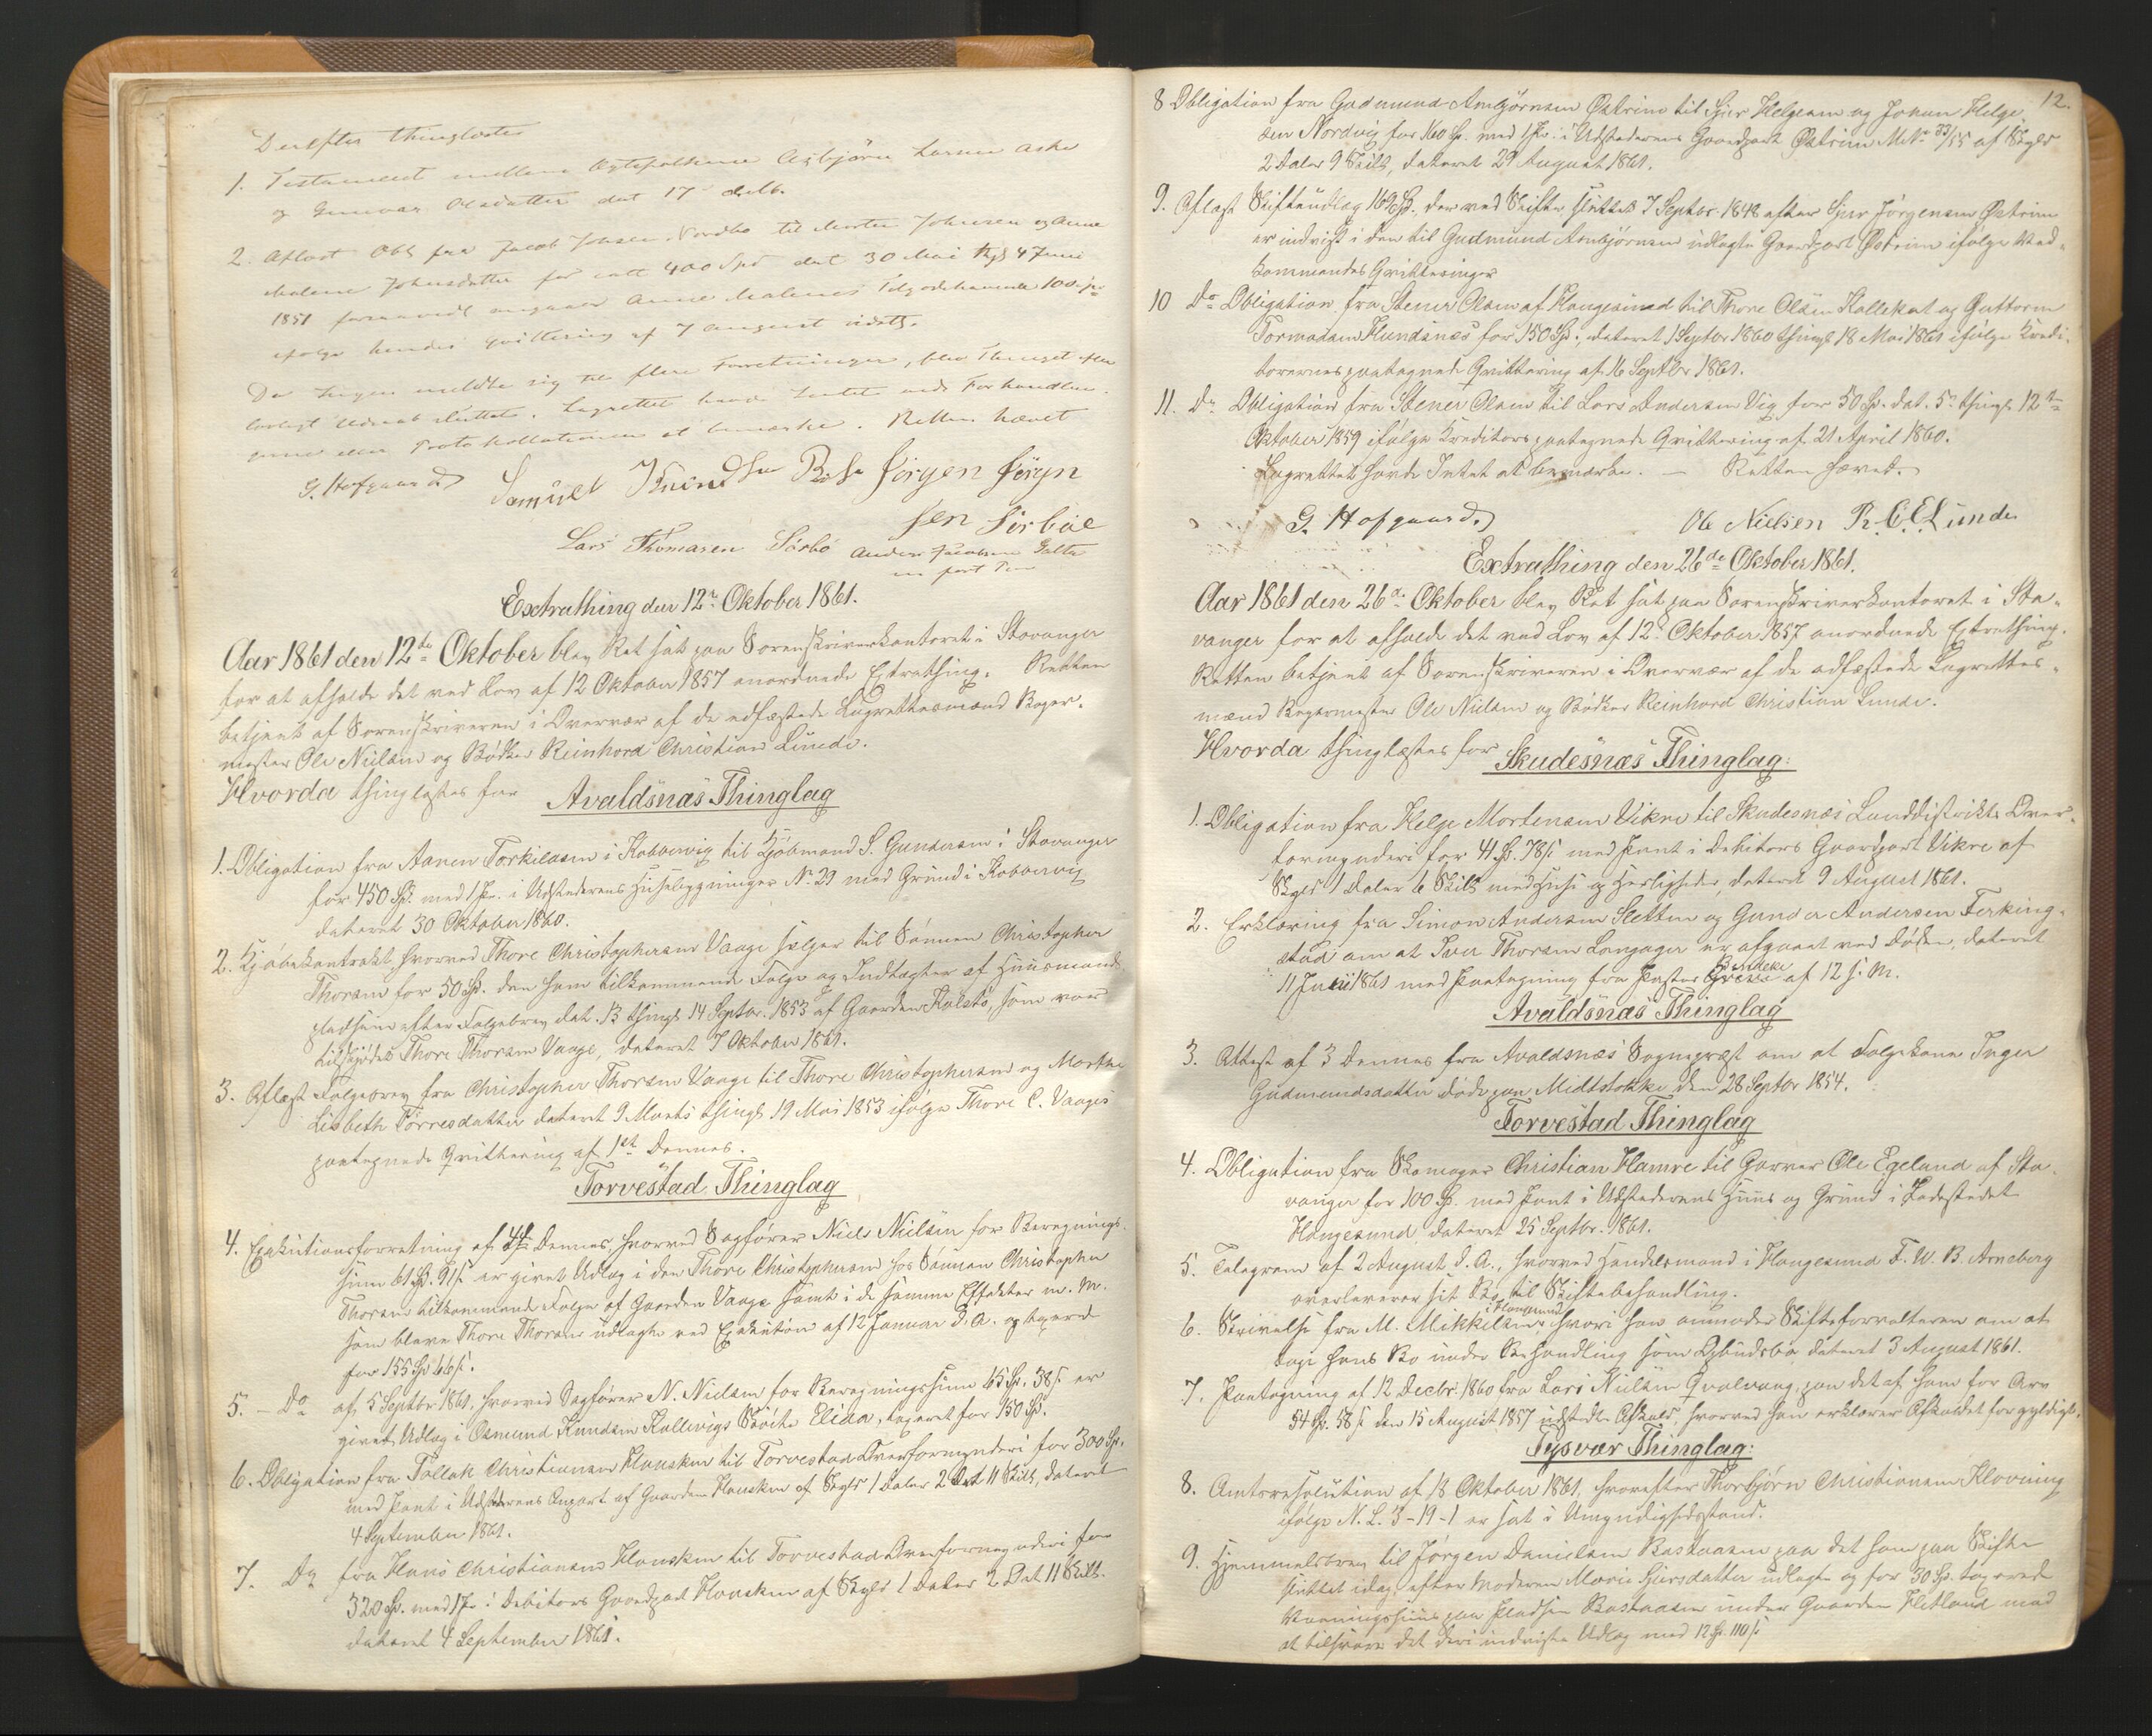 Derefter thinglæstes
1. Testament mellem Ægtefolkene Asbjörn Larsen Aske
og Gunvor Olsdatter dat 17 d. M.
2. Aflæst Obl fra Jacob Johnsen Nordbø til Morten Johnsen og Anne
Malene Johnsdatter for ialt 400 Spd dat 30 Mai thgl 4 Juni
1851 forsaavidt angaaer Anne Malenes Tilgodehavende 100 Spd
ifølge hendes Qvittering af 7 August sidstl.
Da Ingen meldte sig til flere Forretninger, blev Thinget efter
lovligt Udraab sluttet. Lagrettet havde Intet ved Forhandlin-
gerne eller Protokollationen at bemærke. Retten hævet
G. Hofgaard Samuel Knudsen Jörgen Jörgen
sen Sörböe
Lars Thomasen Sörbö Anders Jacobsen Galta
m. ført Pen
Extrathing den 12te Oktober 1861.
Aar 1861 den 12te Oktober blev Ret sat paa Sorenskriverkontoret i Stavanger
for at afholde det ved Lov af 12 Oktober 1857 anordnede Extrathing. Retten
betjent af Sorenskriveren i Overvær af de edfæstede Lagrettesmænd Bager-
mester Ole Nielsen og Bødker Reinhard Christian Lunde.
Hvorda thinglæstes for Avaldsnæs Thinglag
1. Obligation fra Aanen Torkilsen i Kobbervig til Kjøbmand S. Gundersen i Stavanger
for 450 Sp. med 1 Pr. i Udstederens Huusbygninger No 29 med Grund i Kobbervig
dateret 30 Oktober 1860.
2. Kjøbekontrakt hvorved Thore Christophersen Vaage sælger til Sønnen Christopher
Thorsen for 50 Sp. den ham tilkommende Folge og Indtægter af Huusmands-
pladsene efter Folgebrev dat. 13 thingl 14 Septbr. 1853 af Gaarden Kalstø, som var
tilskjødet Thore Thorsen Vaage, dateret 7 Oktober 1861.
3. Aflæst Folgebrev fra Christopher Thorsen Vaage til Thore Christophersen og Marthe
Lisbeth Törresdatter dateret 9 Marts thingl 19 Mai 1853 ifølge Thore C. Vaages
paategnede Qvittering af 1st Dennes.
Torvestad Thinglag
4. Exekutionsforretning af 4de Dennes, hvorved Sagfører Niels Nielsen for Beregnings-
sum 61 Sp. 91 s er givet Udlæg i den Thore Christophersen hos Sønnen Christopher
Thorsen tilkommende Folge af Gaarden Vaage samt i de samme Effekter m. M.
som bleve Thore Thorsen udlagte ved Exekution af 12 Januar d. A. og taxerd
for 155 Sp 66 s.
5. - Do af 5 Septbr 1861, hvorved Sagfører N. Nielsen for Beregningssum 65 Sp. 38 s er
givet Udlæg i Osmund Knudsen Kallevigs Skøite Elida, taxeret for 150 Sp.
6. Obligation fra Tollak Christiansen Hausken til Torvestad Overformynderi for 300 Sp.
med Pant i Udstederens Anpart af Gaarden Hausken af Skyld 1 Daler 2 Ort 11 Skill, dateret
4 September 1861.
7. Do fra Hans Christiansen Hausken til Torvestad Overformynderi for
320 Sp. med 1 Pr i Debitors Gaardpart Hausken af Skyld 1 Daler 2 Ort 11 Skill.
dateret 4 September 1861.
12.
8 Obligation fra Gudmund Arnbjørnsen Østrim til Sjur Helgesen og Johan Helge-
sen Nordvig for 160 Sp. med 1 Pr. i Udstederens Gaardpart Østrim M No 33/55 af Skyld
2 Daler 9 Skill, dateret 29 August 1861.
9. Aflæst Skifteudlæg 169 Sp. der ved Skifte sluttet 7 Septbr. 1848 efter Sjur Jørgensen Østrim
er indvist i den til Gudmund Arnbjørnsen udlagte Gaardpart Østrim ifølge Ved-
kommendes Qvitteringer
10 Do Obligation fra Stener Olsen af Haugesund til Thore Olsen Kallekat og Guttorm
Tormodsen Hundsnæs for 150 Sp., dateret 1 Septbr 1860 thingl 18 Mai 1861 ifølge Kredi-
torernes paategnede Qvittering af 16 Septbr 1861.
11. Do Obligation fra Stener Olsen til Lars Andersen Vig for 50 Sp. dat. 5te thingl 12te
Oktober 1859 ifølge Kreditors paategnede Qvittering af 21 April 1860.
Lagrettet havde Intet at bemærke. — Retten hævet.
G. Hofgaard Ole Nielsen R. C. E. Lunde
Extrathing den 26de Oktober 1861.
Aar 1861 den 26de Oktober blev Ret sat paa Sorenskriverkontoret i Sta-
vanger for at afholde det ved Lov af 12te Oktober 1857 anordnede Extrathing.
Retten betjent af Sorenskriveren i Overvær af de edfæstede Lagrettes-
mænd Bagermester Ole Nielsen og Bødker Reinhard Christian Lunde.
Hvorda thinglæstes for Skudesnæs Thinglag:
1. Obligation fra Helge Mortensen Vikre til Skudesnæs Landdistrikts Over-
formynderi for 41 Sp. 78 s med Pant i Debitors Gaardpart Vikre af
Skyld 1 Daler 6 Skill med Huse og Herligheder, dateret 9 August 1861.
2. Erklæring fra Simon Andersen Sletten og Gunder Andersen Ferking-
stad om at Iver Thorsen Langager er afgaaet ved Døden, dateret
11 Juni 1861 med Paategning fra Pastor Bindeke af 12 s. M.
Avaldsnæs Thinglag
3. Attest af 3 Dennes fra Avaldsnæs Sognepræst om at Folgekone Inger
Gudmundsdatter døde paa Midtstokke den 28 Septbr 1854.
Torvestad Thinglag
4. Obligation fra Skomager Christian Hamre til Garver Ole Egeland af Sta-
vanger for 100 Sp. med Pant i Udstederens Huus og Grund i Ladestedet
Haugesund, dateret 25 Septbr. 1861.
5. Telegram af 2 August d. A., hvorved Handelsmand i Haugesund F. W. B. Arneberg
overleverer sit Bo til Skiftebehandling.
6. Skrivelse fra M. Mikkelsen i Haugesund, hvori han anmoder Skifteforvalteren om at
tage hans Bo under Behandling som Opbudsbo dateret 3 August 1861.
7. Paategning af 12 Decbr. 1860 fra Lars Nielsen Qvalvaag, paa det af ham for Arv
54 Sp. 58 s den 15 August 1857 udstedte Afkald, hvorved han erklærer Afkaldet for gyldigt.
Tysvær Thinglag:
8. Amtsresolution af 18 Oktober 1861, hvorefter Thorbjørn Christiansen Klovning
ifølge N. L. 3-19-1 er sat i Umyndighedsstand.
9. Hjemmelsbrev til Jørgen Danielsen Bastaasen paa det ham paa Skifte
sluttet idag efter Moderen Marie Sjursdatter udlagte og for 30 Sp. taxerede
Vaaningshuus paa Pladsen Bastaasen under Gaarden Hetland mod
at tilsvare det deri indviste Udlæg med 12 Sp. 110 s